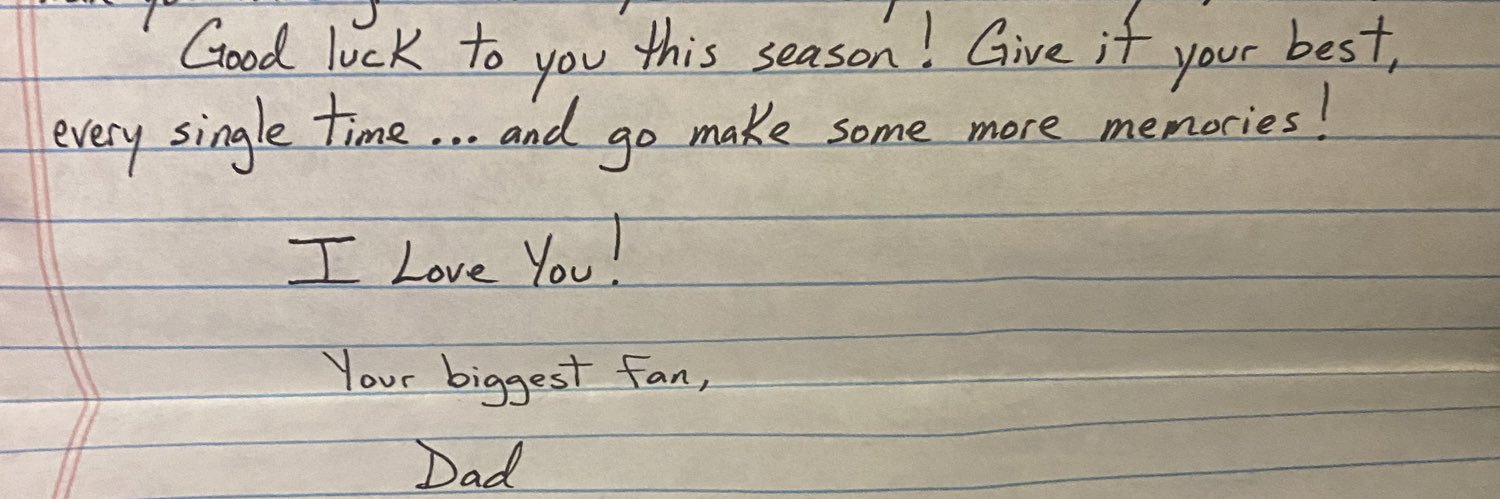 Good luck to you this season! Give it your best,
every single time... and go make some more memories!
I Love You!
Your biggest fan,
Dad